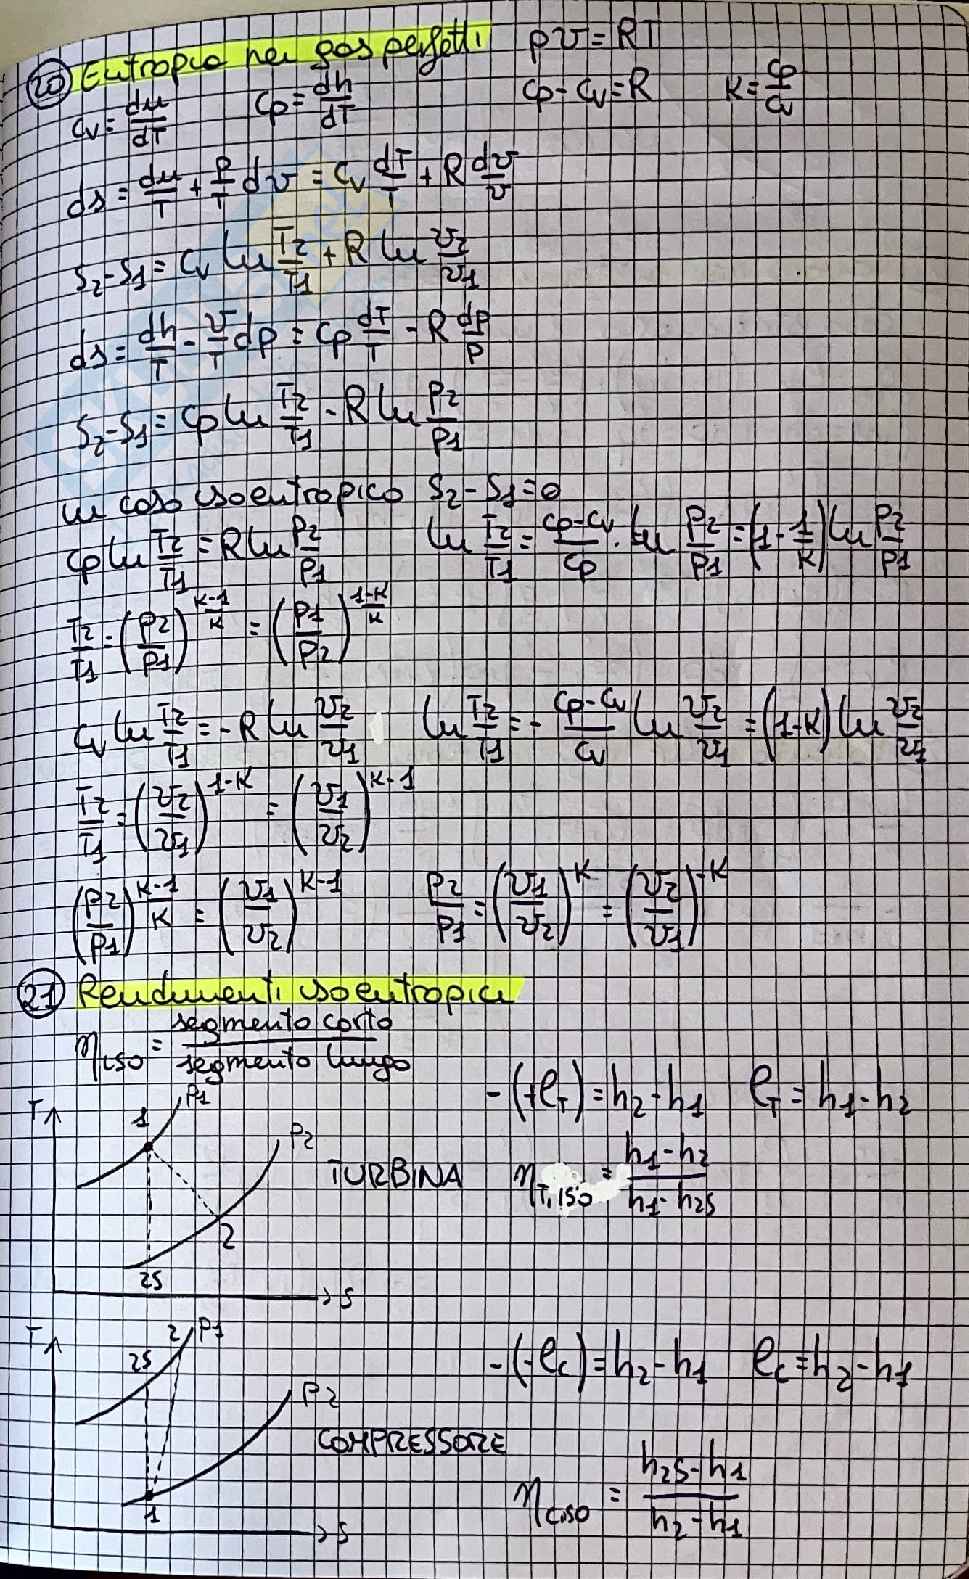 20 Entropia nei gas perfetti pv=RT
cv=du/dT cp=dh/dT cp-cv=R K=cp/cv
ds=du/T+p/T dv=cv dT/T+R dv/v
S2-S1=cv ln T2/T1+R ln v2/v1
ds=dh/T-v/T dp=cp dT/T-R dp/p
S2-S1=cp ln T2/T1-R ln p2/p1
in caso isoentropico S2-S1=0
cp ln T2/T1=R ln p2/p1 ln T2/T1=(cp-cv)/cp·ln p2/p1=(1-1/K) ln p2/p1
T2/T1=(p2/p1)^((K-1)/K)=(p1/p2)^((1-K)/K)
cv ln T2/T1=-R ln v2/v1 ln T2/T1=-(cp-cv)/cv ln v2/v1=(1-K) ln v2/v1
T2/T1=(v2/v1)^(1-K)=(v1/v2)^(K-1)
(p2/p1)^((K-1)/K)=(v1/v2)^(K-1) p2/p1=(v1/v2)^K=(v2/v1)^-K
21 Rendimenti isoentropici
ηiso=segmento corto/segmento lungo
-(+lT)=h2-h1 lT=h1-h2
T 1 P1 P2 2 2S S
TURBINA ηT,iso=(h1-h2)/(h1-h2s)
-(-lc)=h2-h1 lc=h2-h1
T 2S 2 P1 P2 1 S
COMPRESSORE
ηciso=(h2s-h1)/(h2-h1)